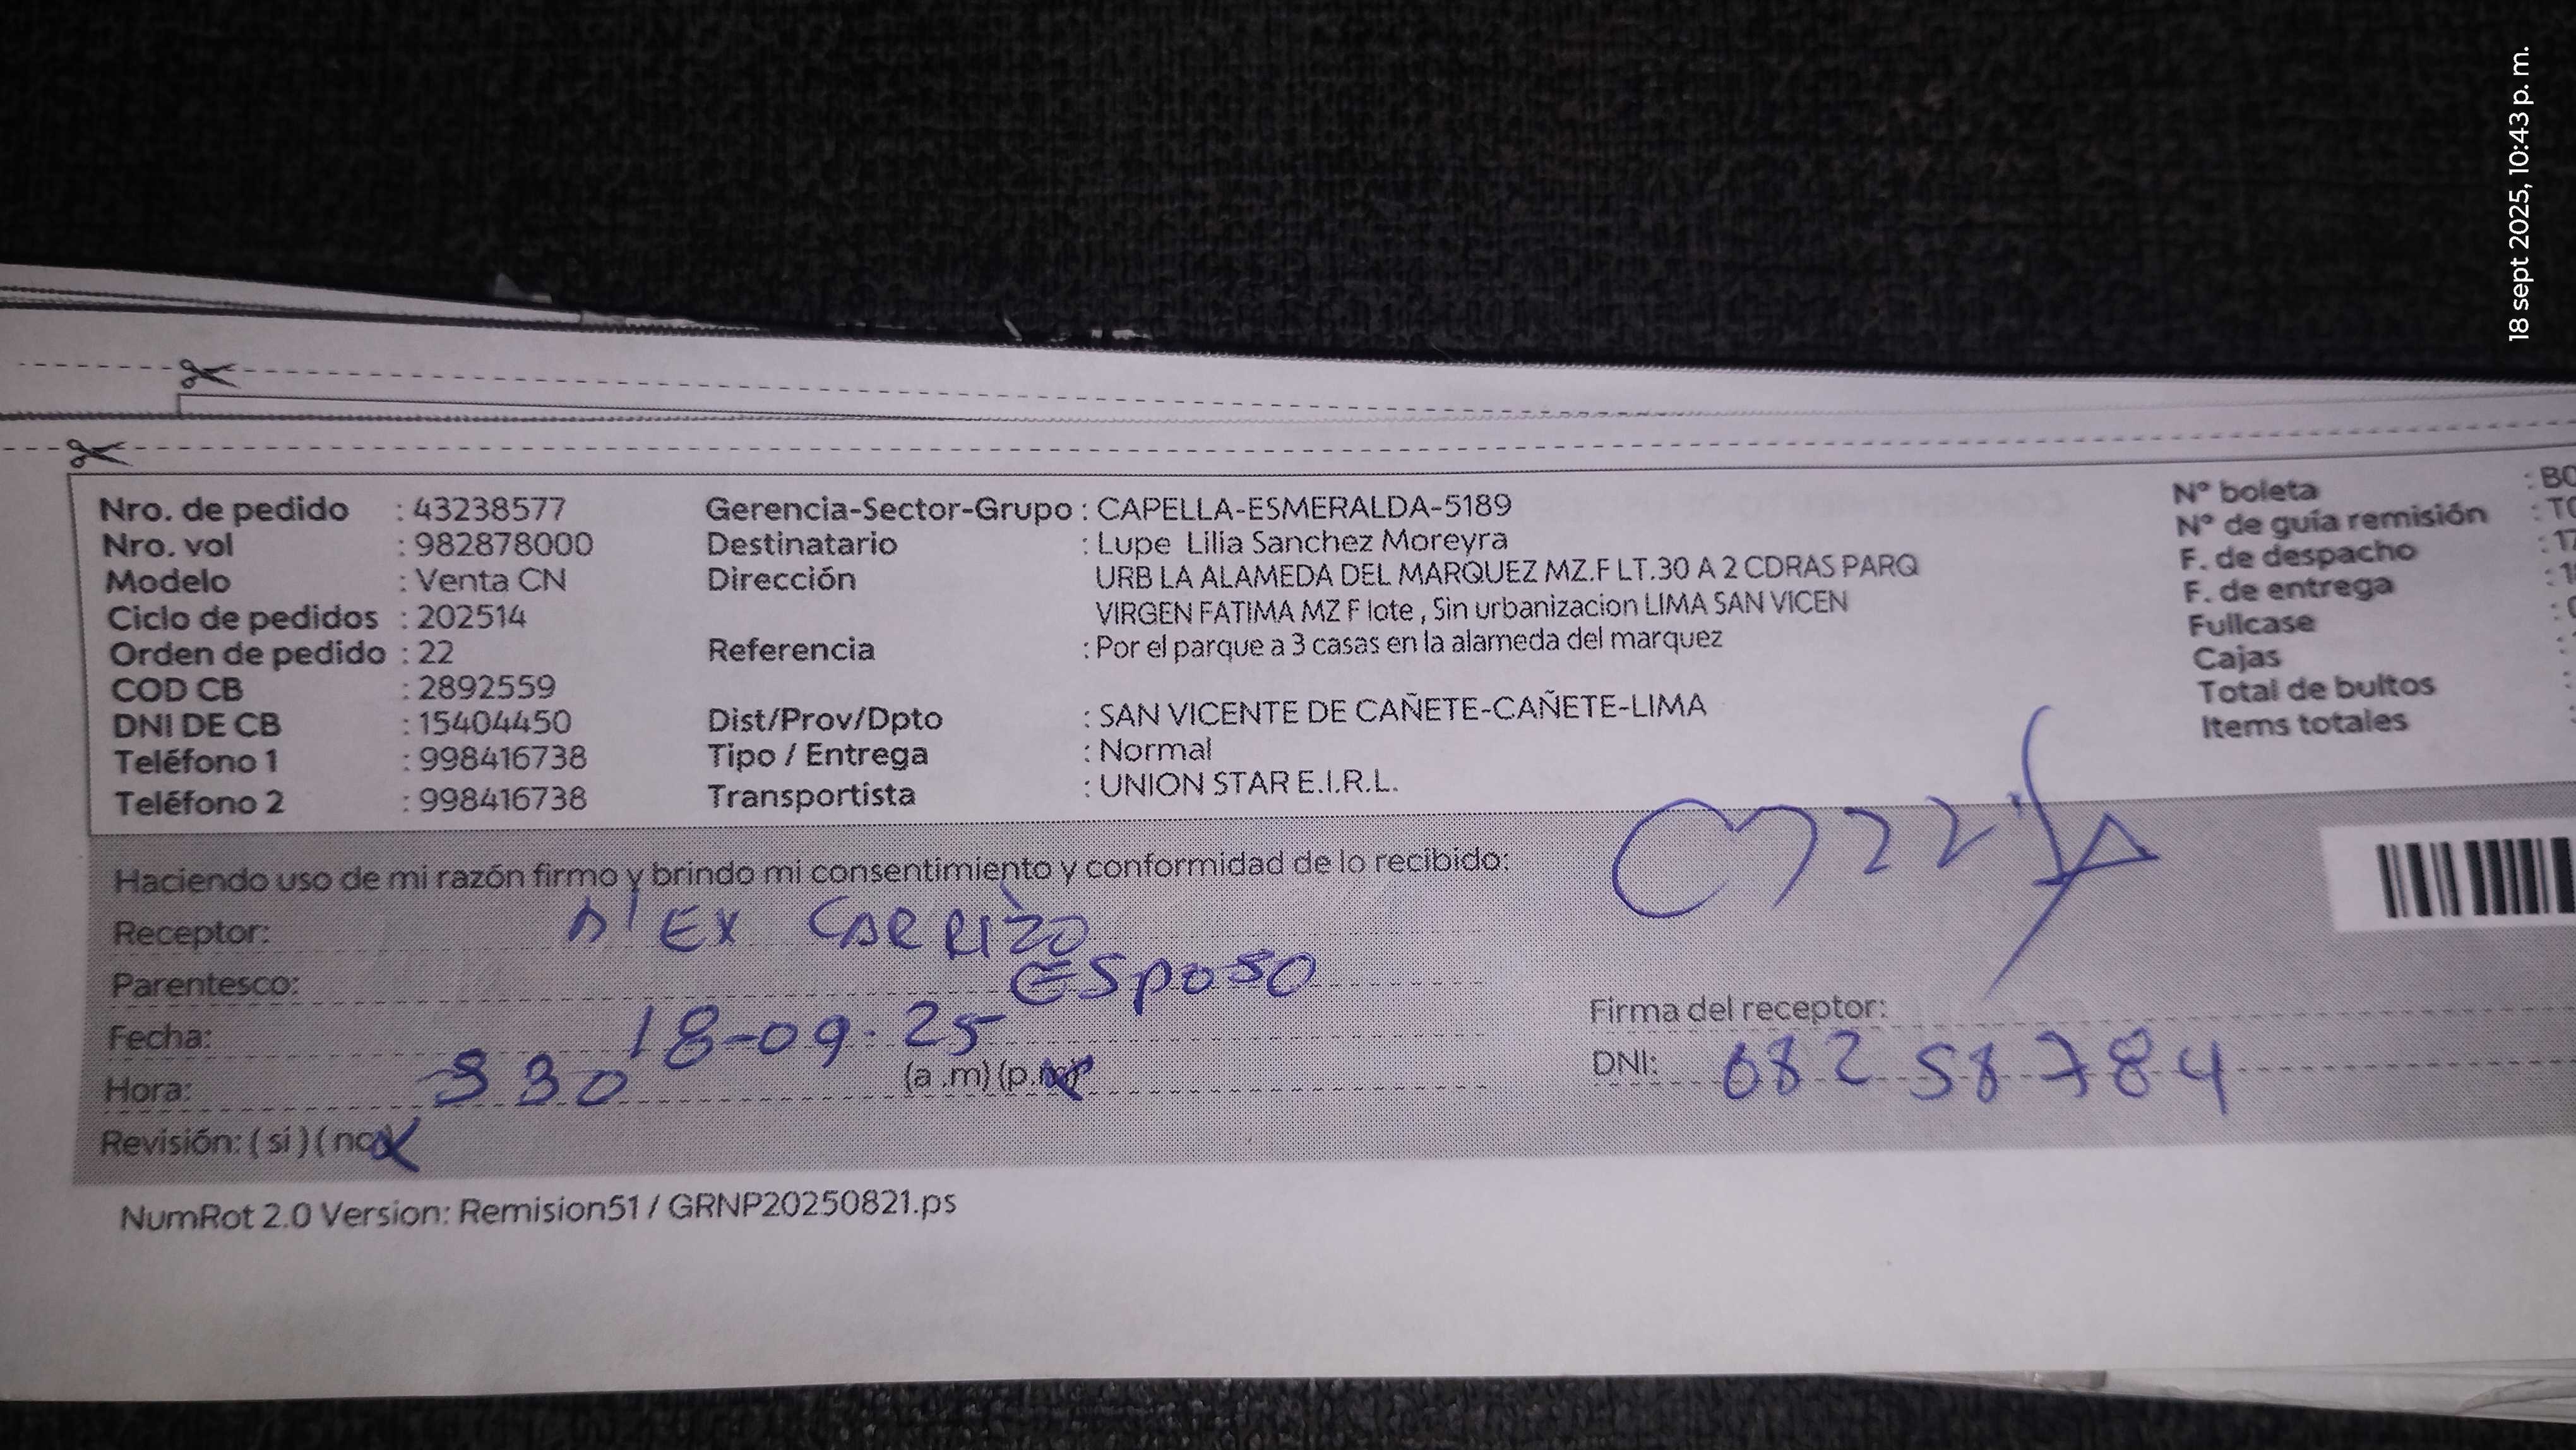 18 sept 2025, 10:43 p. m.
Nro. de pedido : 43238577
Nro. vol : 982878000
Modelo : Venta CN
Ciclo de pedidos : 202514
Orden de pedido : 22
COD CB : 2892559
DNI DE CB : 15404450
Teléfono 1 : 998416738
Teléfono 2 : 998416738
Gerencia-Sector-Grupo : CAPELLA-ESMERALDA-5189
Destinatario : Lupe Lilia Sanchez Moreyra
Dirección URB LA ALAMEDA DEL MARQUEZ MZ.F LT.30 A 2 CDRAS PARQ
VIRGEN FATIMA MZ F lote , Sin urbanizacion LIMA SAN VICEN
Referencia : Por el parque a 3 casas en la alameda del marquez
Dist/Prov/Dpto : SAN VICENTE DE CAÑETE-CAÑETE-LIMA
Tipo / Entrega : Normal
Transportista : UNION STAR E.I.R.L.
N° boleta : BO
N° de guía remisión : T0
F. de despacho : 17
F. de entrega
Fullcase
Cajas
Total de bultos
Items totales
Haciendo uso de mi razón firmo y brindo mi consentimiento y conformidad de lo recibido:
Receptor: CARRIZO
Parentesco: ESPOSO
Fecha: 18-09-25
Hora: 330 (a .m) (p.m)
Revisión: ( si ) ( no )
Firma del receptor:
DNI: 08258784
NumRot 2.0 Version: Remision51 / GRNP20250821.ps